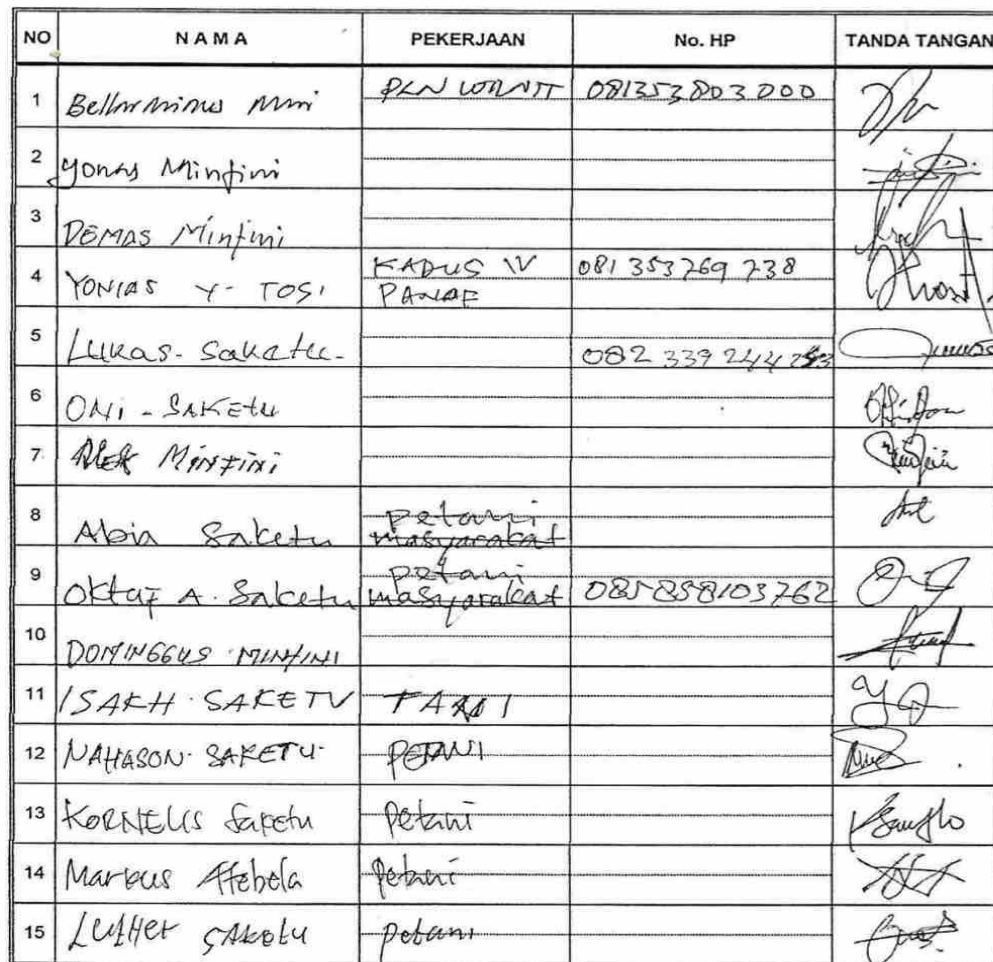 NO NAMA PEKERJAAN No. HP TANDA TANGAN
1 Bellarminus Mini PLN 081353803000
2 Yonas Minfini
3 DEMAS Minfini
4 YONIAS Y. TOSI KADUS IV 081 353 769 738
PANAF
5 Lukas. Saketu. 082 339 244
6 ONI - SAKEtu
7 Alek MINFini
8 Abia Saketu petani
masyarakat
9 Oktaf A. Saketu petani 085858103762
masyarakat
10 DOMINGGUS MINFINI
11 ISAKH. SAKETU TANI
12 NAHASON. SAKETU. PETANI
13 KORNELIS Saketu Petani
14 Markus Afebela Petani
15 LUtHer SAketu petani